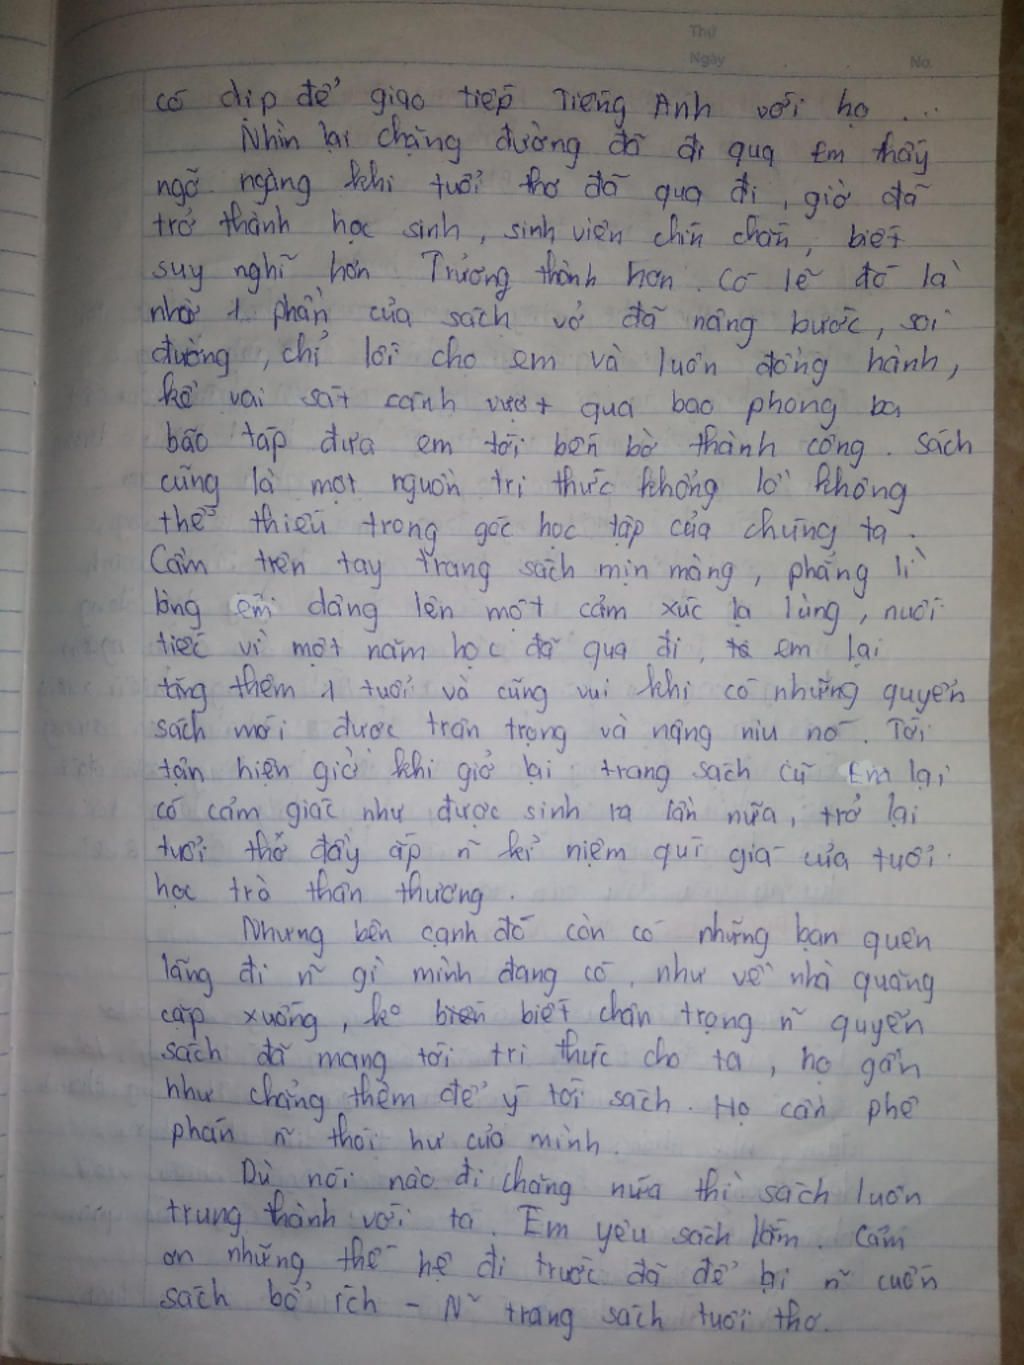 Thứ
Ngày No.
có dịp để giao tiếp Tiếng Anh với họ ...
Nhìn lại chặng đường đã đi qua Em thấy
ngỡ ngàng khi tuổi thơ đã qua đi, giờ đã
trở thành học sinh, sinh viên chín chắn, biết
suy nghĩ hơn Trưởng thành hơn. Có lẽ đó là
nhờ 1 phần của sách vở đã nâng bước, soi
đường, chỉ lối cho em và luôn đồng hành,
kề vai sát cánh vượt qua bao phong ba
bão táp đưa em tới bến bờ thành công. sách
cũng là một nguồn tri thức khổng lồ không
thể thiếu trong góc học tập của chúng ta.
Cầm trên tay trang sách mịn màng, phẳng lì
lòng em dâng lên một cảm xúc lạ lùng, nuối
tiếc vì một năm học đã qua đi, em lại
tăng thêm 1 tuổi và cũng vui khi có những quyển
sách mới được trân trọng và nâng niu nó. Tới
tận hiện giờ khi giở lại trang sách cũ Em lại
có cảm giác như được sinh ra lần nữa, trở lại
tuổi thơ đầy ắp ñ kỉ niệm quí giá của tuổi
học trò thân thương.
Nhưng bên cạnh đó còn có những bạn quên
lãng đi ñ gì mình đang có, như về nhà quăng
cặp xuống, ko biết chân trọng ñ quyển
sách đã mang tới tri thức cho ta, họ gần
như chẳng thèm để ý tới sách. Họ cần phê
phán ñ thói hư của mình.
Dù nói nào đi chăng nữa thì sách luôn
trung thành với ta. Em yêu sách lắm. Cảm
ơn những thế hệ đi trước đã để lại ñ cuốn
sách bổ ích - Ñ trang sách tuổi thơ.